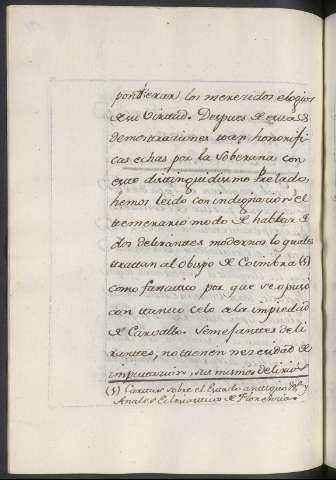 ponderar los merecidos elogios
de su Virtud. Despues de estas
demostraciones tan honorifi
cas echas por la Soberana con
este distinguidisimo Prelado,
hemos leido con indignacion el
temerario modo de hablar de
dos delirantes modernos lo quales
trattan al Obispo de Coimbra (1)
como fanatico por que se opuso
con tanto celo a la impiedad
de Carvallo. Semejantes deli
rantes, no tienen necesidad de
imputacion, sus mismos delirios
(1) Caritas sobre el Estado antiguo &c y
Anales Eclesiasticos de Florencia.